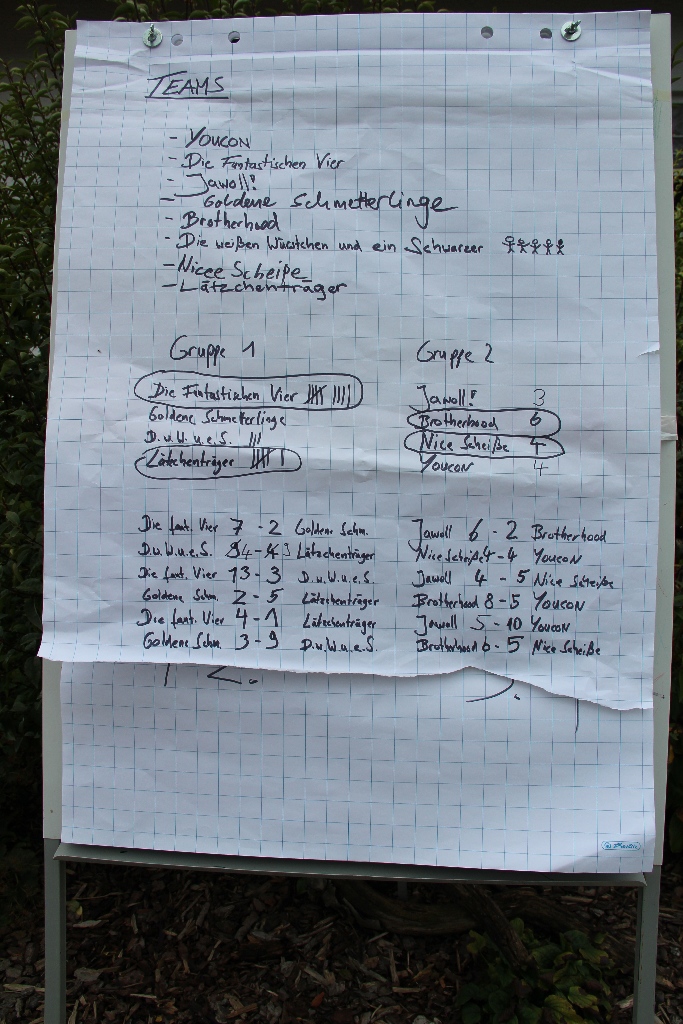 TEAMS
- YOUCON
- Die Fantastischen Vier
- Jawoll!
- Goldene Schmetterlinge
- Brotherhood
- Die weißen Würstchen und ein Schwarzer
- Nicee Scheiße
- Lätzchenträger
Gruppe 1
Die Fantastischen Vier
Goldene Schmetterlinge
D.u.W.u.e.S. |||
Lätzchenträger
Die fant. Vier 7 - 2 Goldene Schm.
D.u.W.u.e.S. 4 - 3 Lätzchenträger
Die fant. Vier 13 - 3 D.u.W.u.e.S.
Goldene Schm. 2 - 5 Lätzchenträger
Die fant. Vier 4 - 1 Lätzchenträger
Goldene Schm. 3 - 9 D.u.W.u.e.S.
Gruppe 2
Jawoll! 3
Brotherhood 6
Nice Scheiße 4
YOUCON 4
Jawoll 6 - 2 Brotherhood
Nice Scheiße 4 - 4 YOUCON
Jawoll 4 - 5 Nice Scheiße
Brotherhood 8 - 5 YOUCON
Jawoll 5 - 10 YOUCON
Brotherhood 6 - 5 Nice Scheiße
2.
3.